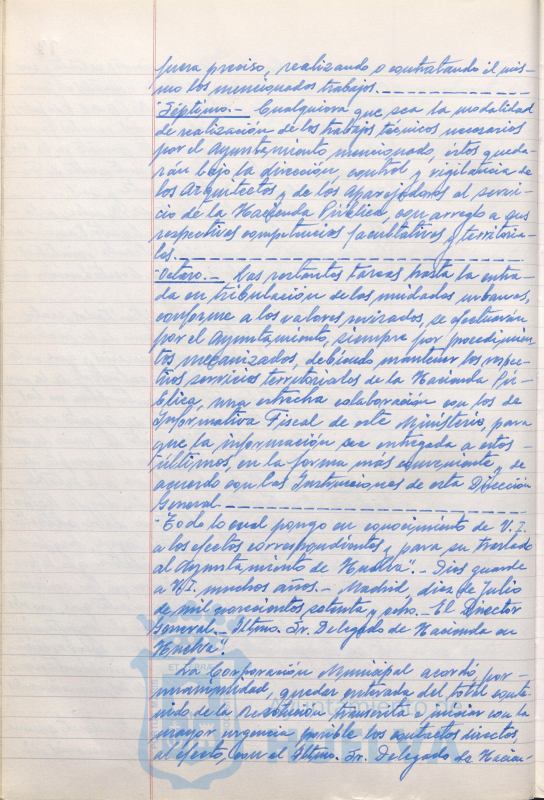 fuera preciso, realizando o contratando él mis-
mo los mencionados trabajos.
"Séptimo.- Cualquiera que sea la modalidad
de realización de los trabajos técnicos necesarios
por el Ayuntamiento mencionado, éstos queda-
rán bajo la dirección, control y vigilancia de
los Arquitectos y de los Aparejadores al servi-
cio de la Hacienda Pública, con arreglo a sus
respectivas competencias facultativas y territoria-
les.
"Octavo.- Las restantes tareas hasta la entra-
da en tributación de las unidades urbanas,
conforme a los valores revisados, se efectuarán
por el Ayuntamiento, siempre por procedimien-
tos mecanizados, debiendo mantener los respec-
tivos servicios territoriales de la Hacienda Pú-
blica, una estrecha colaboración con los de
Informativa Fiscal de este Ministerio, para
que la información sea entregada a estos
últimos, en la forma más conveniente y de
acuerdo con las Instrucciones de esta Dirección
General.
"Todo lo cual pongo en conocimiento de V.I.
a los efectos correspondientes y para su traslado
al Ayuntamiento de Huelva".- Dios guarde
a V.I. muchos años.- Madrid, diez de Julio
de mil novecientos setenta y ocho.- El Director
General.- Iltmo. Sr. Delegado de Hacienda en
Huelva".
La Corporación Municipal acordó, por
unanimidad, quedar enterada del total conte-
nido de la Resolución transcrita e iniciar con la
mayor urgencia posible los contactos directos,
al efecto, con el Iltmo. Sr. Delegado de Hacien-
Ayuntamiento de
HUELVA